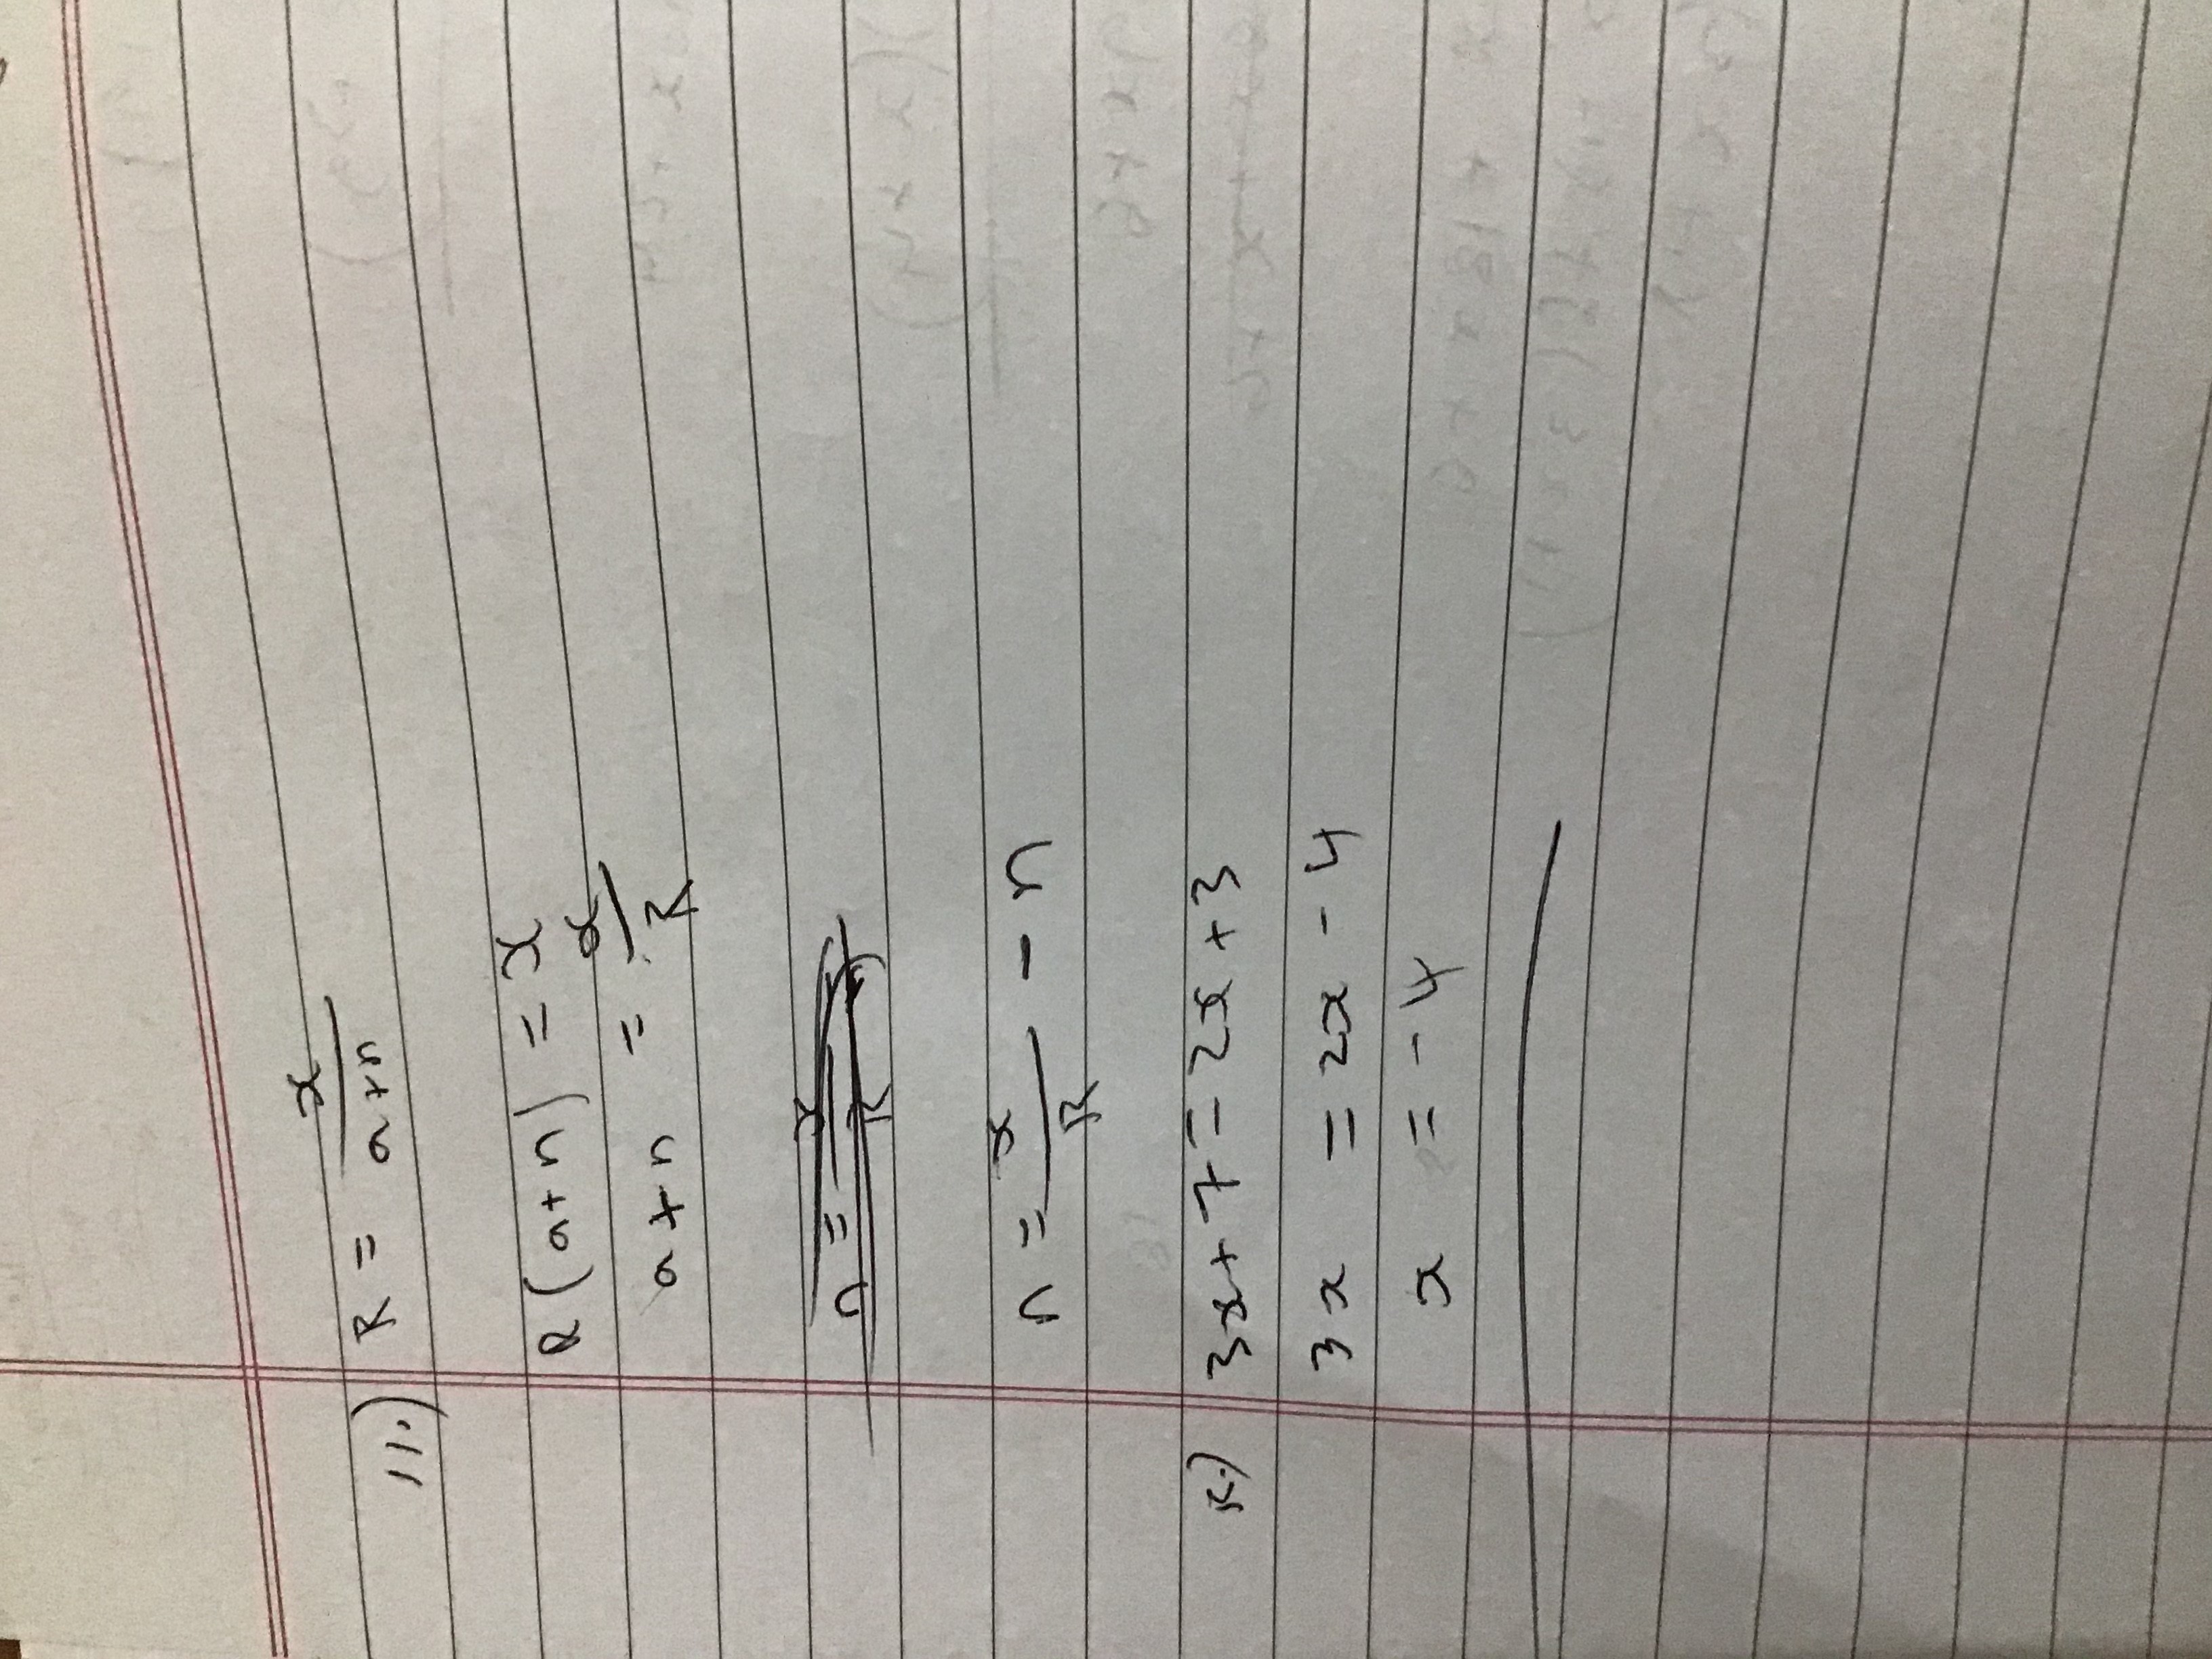 11.) R = x/(a+n)
R(a+n) = x
a+n = x/R
n = x/R - n
3x+7=2x+3
3x = 2x - 4
x = -4